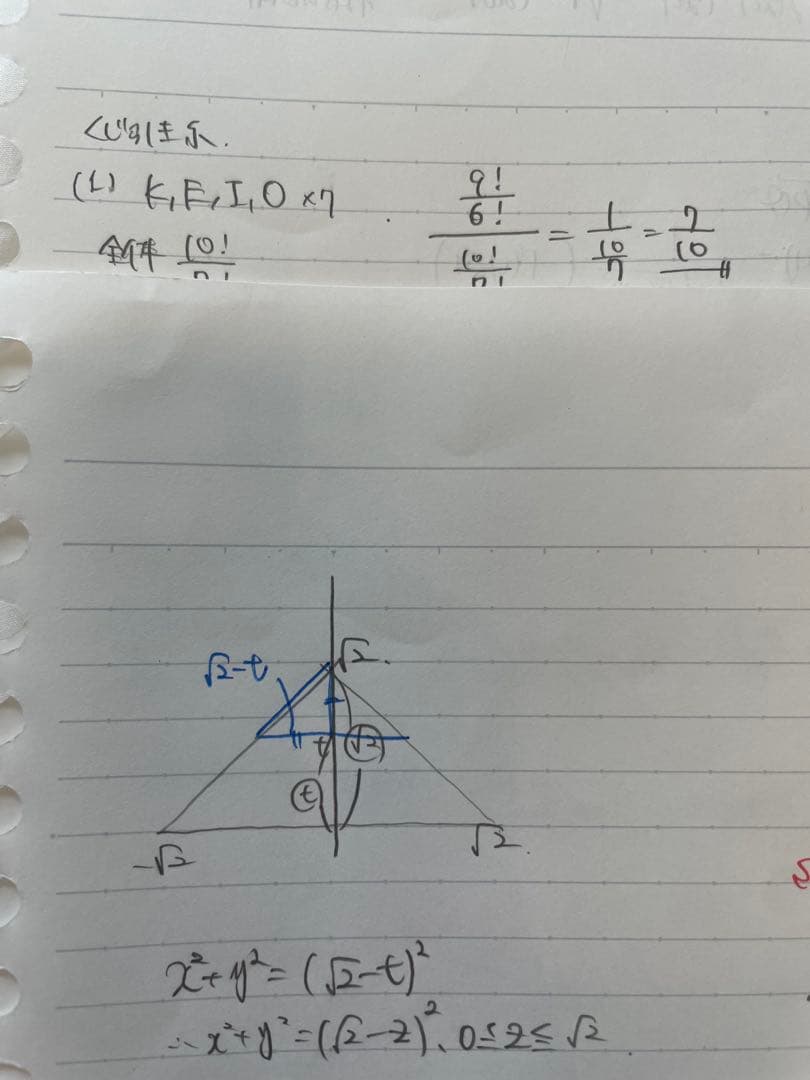 くじ引き系.
(1) K, E, I, O ×7
全体 10!/7!
(9!/6!)/(10!/7!) = 1/(10/7) = 7/10
√2
√2-t
t √2
t
-√2
√2
x²+y²=(√2-t)²
∴ x²+y²=(√2-z)², 0≤z≤√2